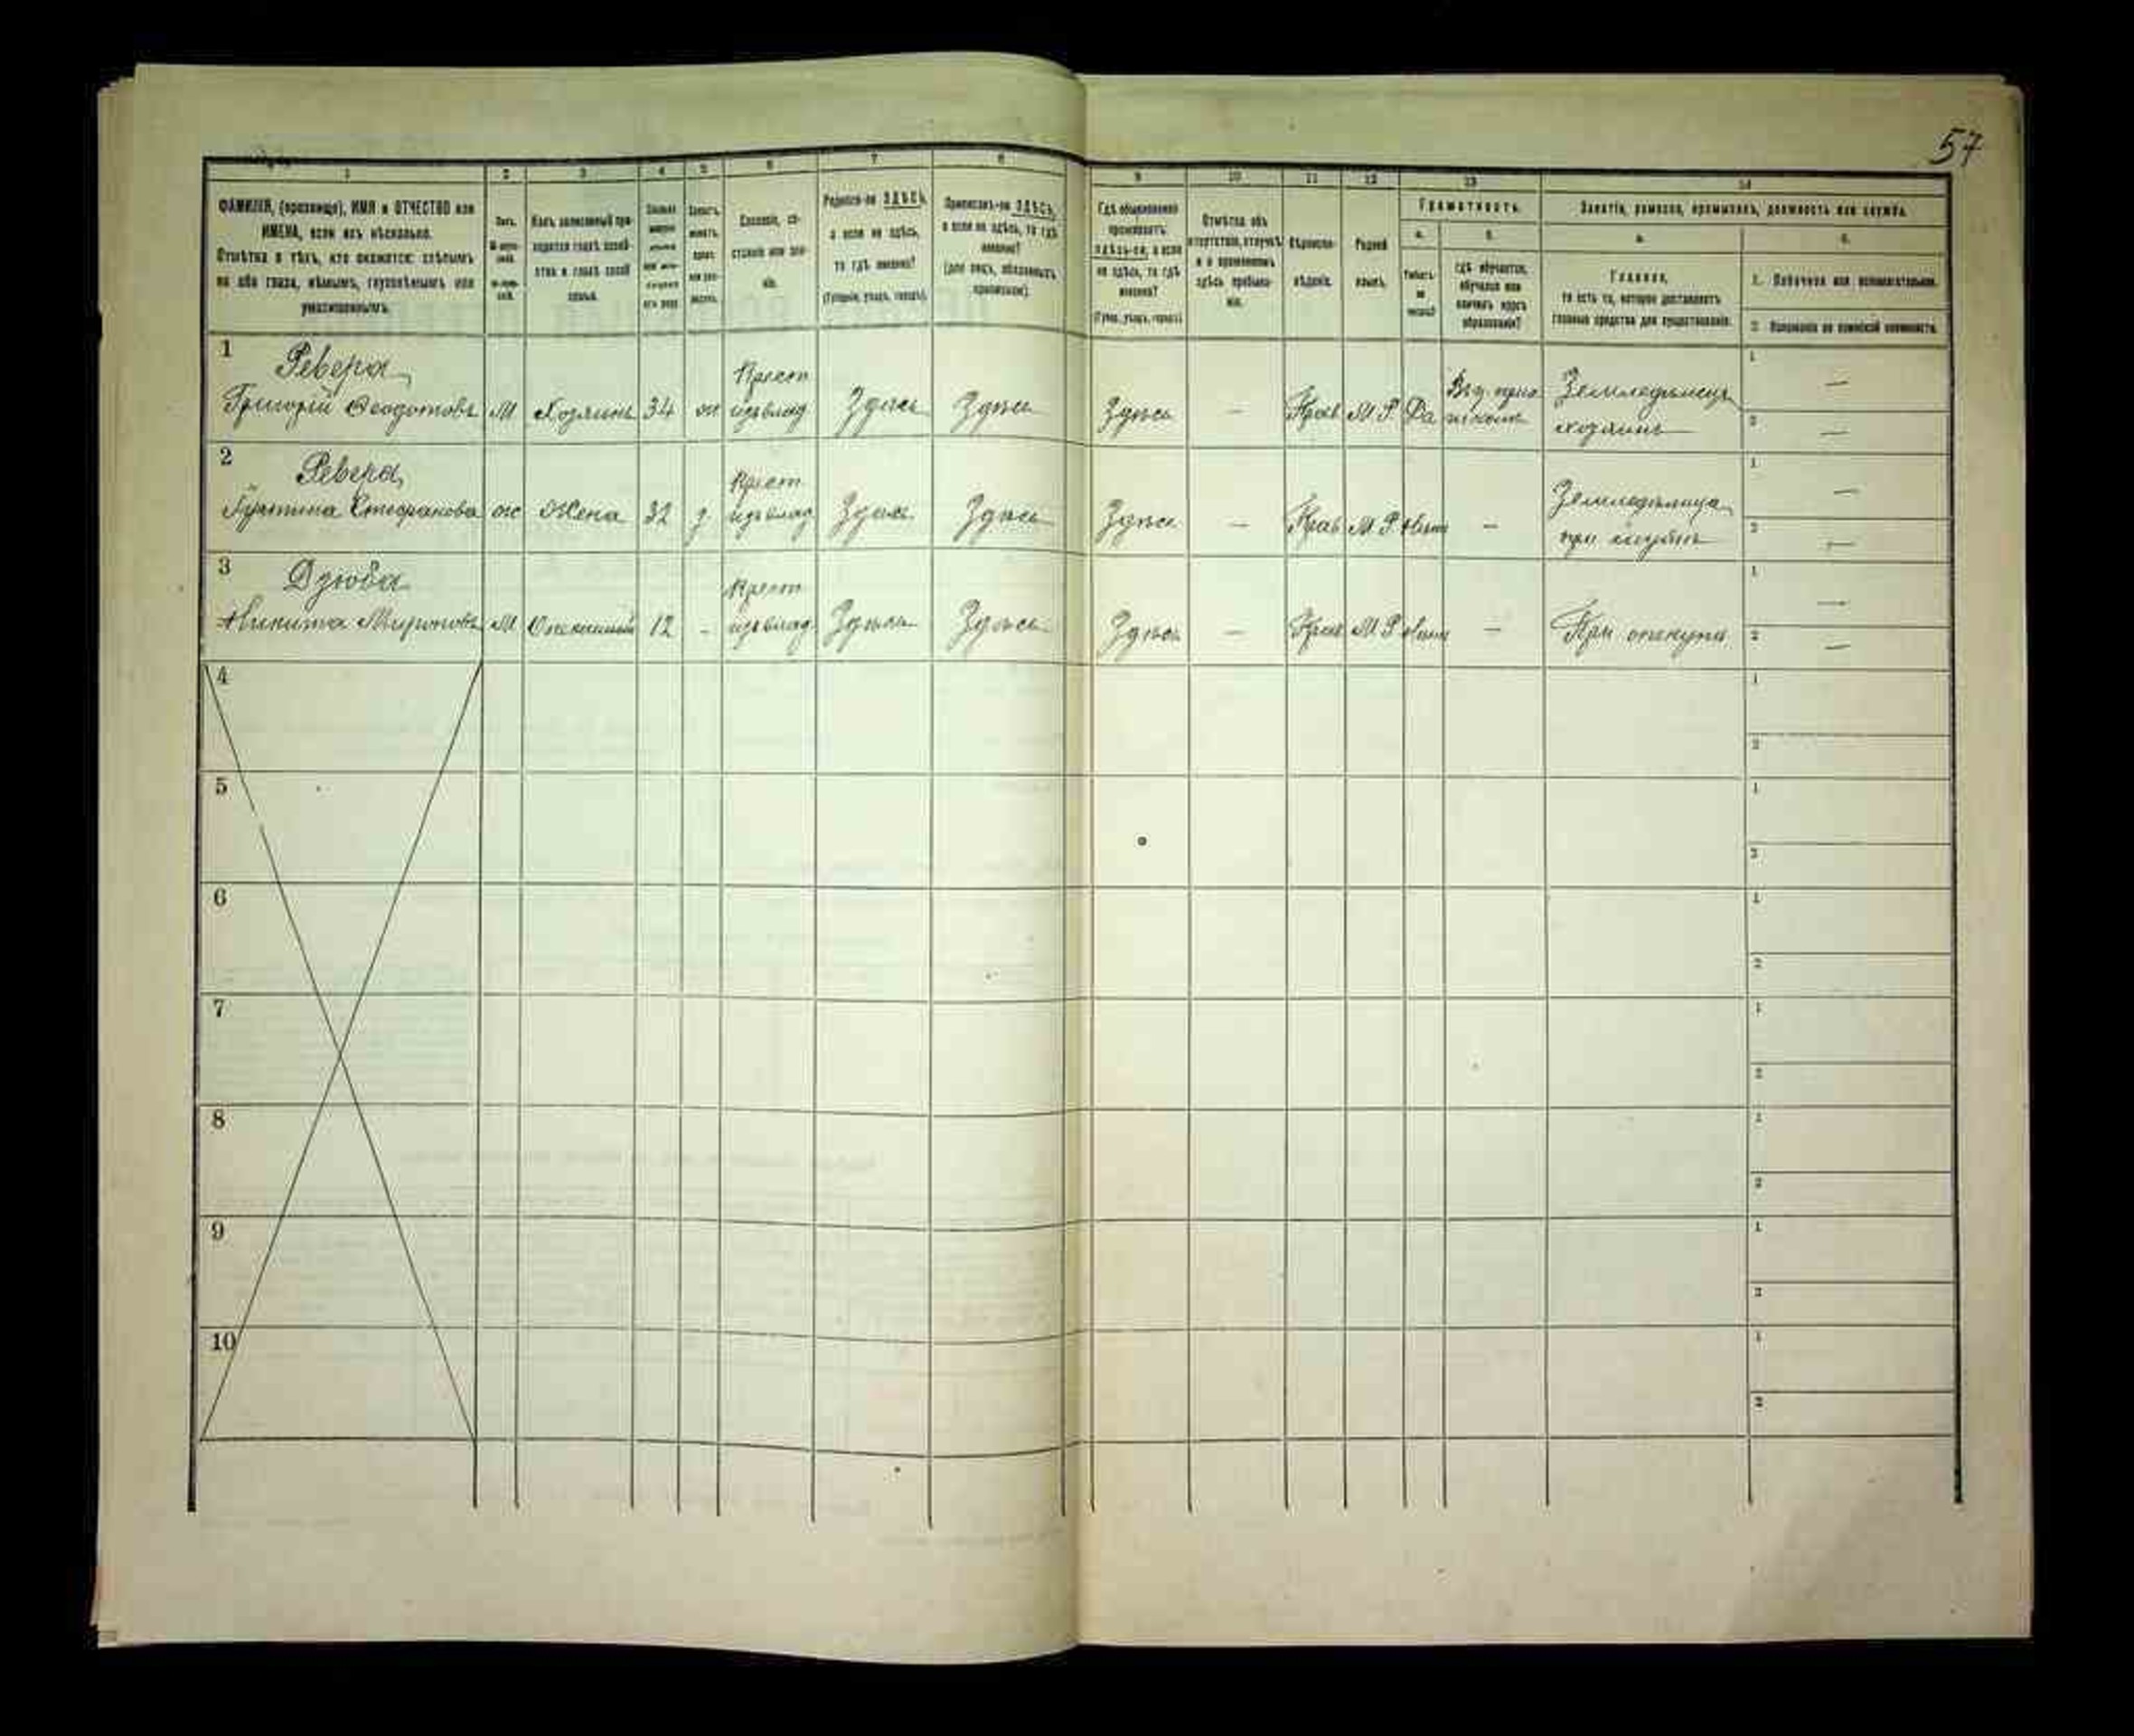 57
1 2 3 4 5 6 7 8 9 10 11 12 13 14
ФАМИЛІЯ, (прозвище), ИМЯ и ОТЧЕСТВО или
ИМЕНА, если ихъ нѣсколько.
Отмѣтка о тѣхъ, кто окажется: слѣпымъ
на оба глаза, нѣмымъ, глухонѣмымъ или
умалишеннымъ.
Полъ.
Какъ записанный при-
ходится главѣ хозяй-
ства и главѣ своей
семьи.
Сословіе, со-
стояніе или зва-
ніе.
Родился-ли ЗДѢСЬ,
а если не здѣсь,
то гдѣ именно?
(Губернія, уѣздъ, городъ).
Приписанъ-ли ЗДѢСЬ,
а если не здѣсь, то гдѣ
именно?
(для лицъ, обязанныхъ
припискою).
Гдѣ обыкновенно
проживаетъ:
здѣсь-ли, а если
не здѣсь, то гдѣ
именно?
(Губер., уѣздъ, городъ).
Отмѣтка объ
отсутствіи, отлучкѣ
и о временномъ
здѣсь пребыва-
ніи.
Вѣроиспо-
вѣданіе.
Родной
языкъ.
Грамотность.
а. б.
Умѣетъ-
ли
читать?
гдѣ обучается,
обучался или
кончилъ курсъ
образованія?
Занятіе, ремесло, промыселъ, должность или служба.
а. б.
Главное,
то есть то, которое доставляетъ
главныя средства для существованія.
1. Побочное или вспомогательное.
2. Положеніе по воинской повинности.
1 Ревера
Григорій Ѳеодотовъ М Хозяинъ 34 ж Крест. изъ влад. Здѣсь Здѣсь Здѣсь — Прав М Р Да Земледѣлецъ
хозяинъ
1 —
2 —
2 Ревера
Стефанова ж Жена 32 Крест. изъ влад. Здѣсь Здѣсь Здѣсь — Прав М Р Нѣтъ — Земледѣлица
при
1 —
2 —
3 Дзюба
Никита Мироновъ М 12 - Крест. изъ влад. Здѣсь Здѣсь Здѣсь — Прав М Р Нѣтъ — При опекунѣ
1 —
2 —
4 1
2
5 1
2
6 1
2
7 1
2
8 1
2
9 1
2
10 1
2